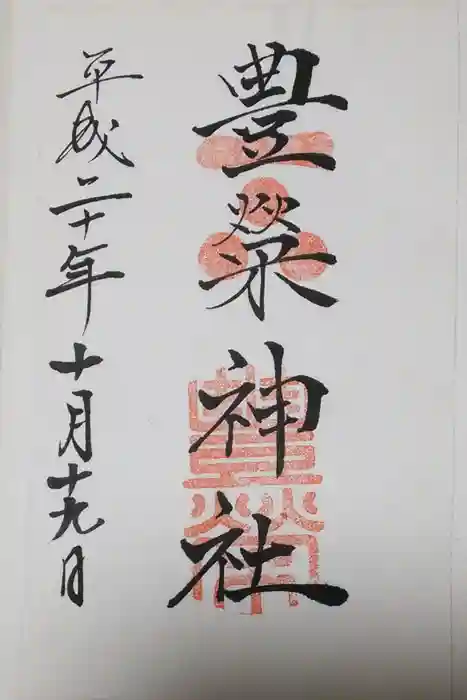 豊榮神社
平成二十年十月十九日
豊榮